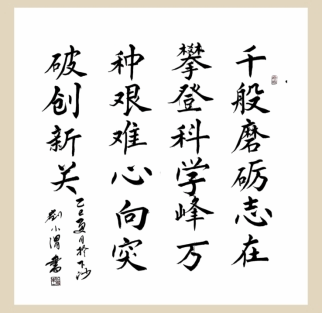 千般磨砺志在
攀登科学峰万
种艰难心向突
破创新关
乙巳夏月於下沙
刘小渭书